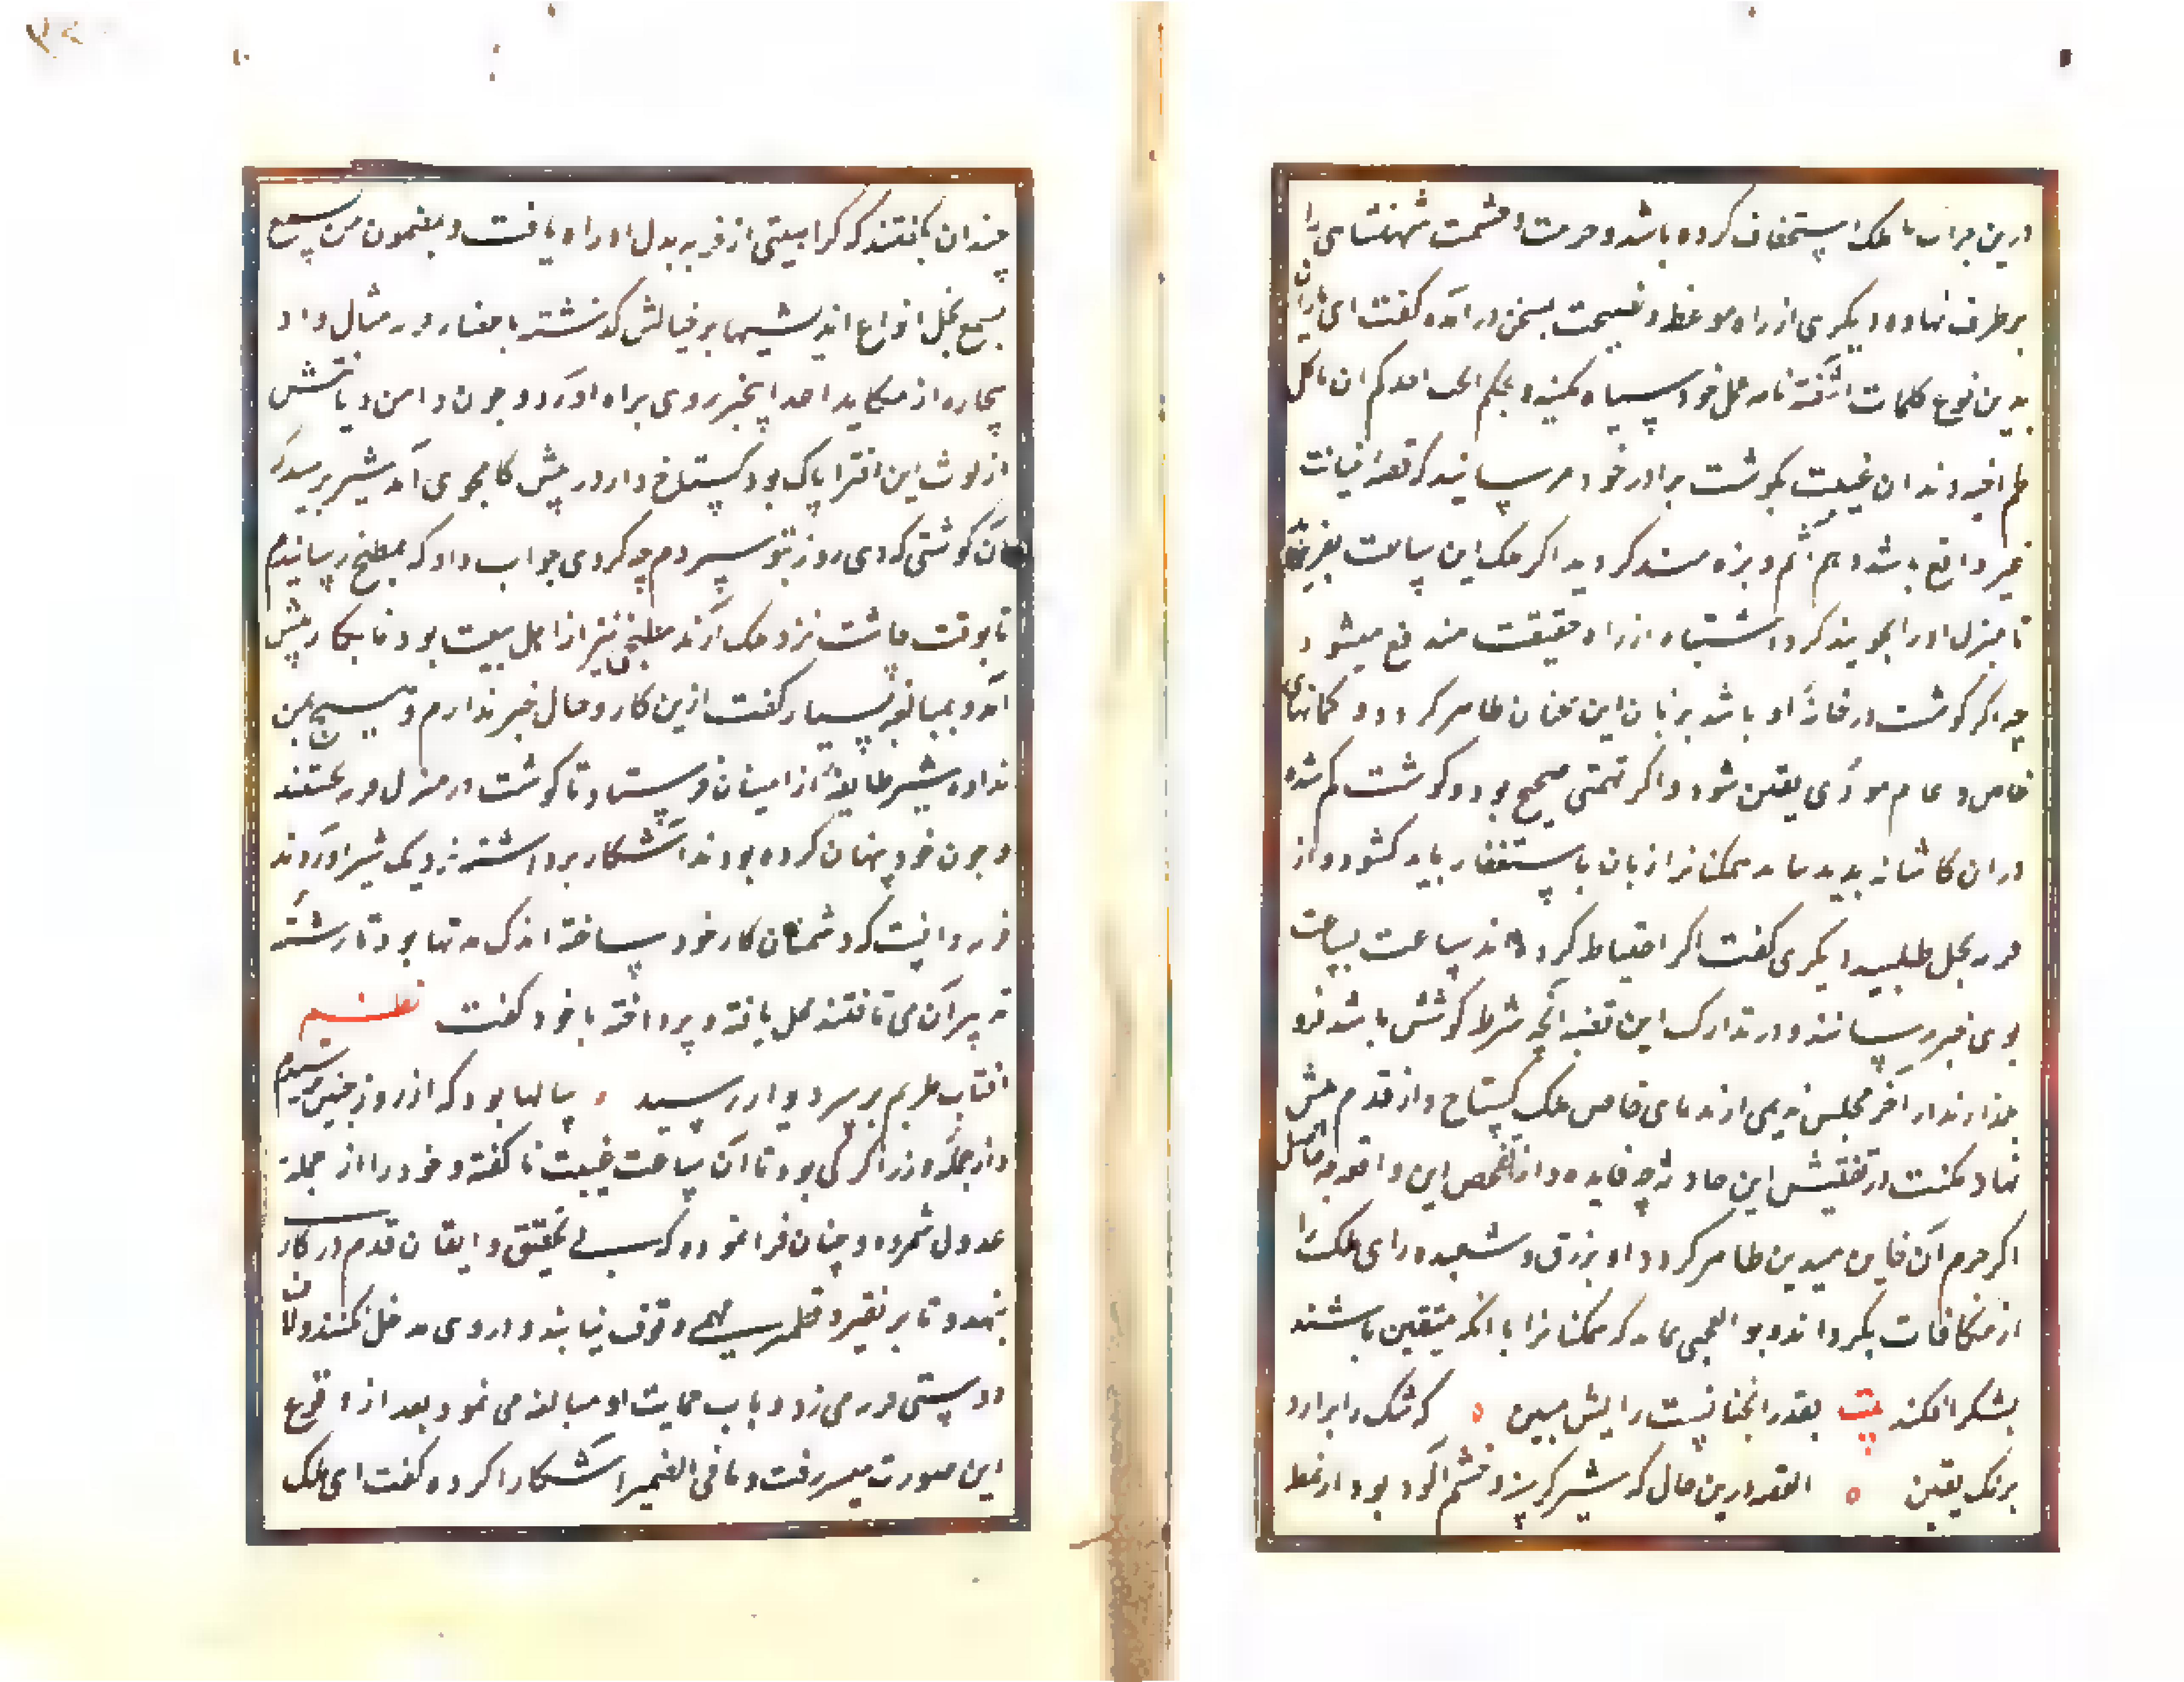 درین جراب با ملک استخفاف کرده باشد و حرمت و حشمت شهنشاهی را
برطرف نهاده دیگری از راه موعظه و نصیحت بسخن درآمده گفت ای یاران
بدین نوع کلمات آشفته نامه عمل خود سیاه مکنید و بحکم ایحب احدکم ان یاکل
لحم اخیه دندان غیبت بگوشت برادر خود مرسانید که قصه خیانت
غیر واقع باشد و هم آثم و بزه مند گردید اگر ملک این ساعت بفرماید
تا منزل او را بجویند گرد اشتباه از راه حقیقت مندفع میشود
چه اگر گوشت در خانه او باشد برهان این سخنان ظاهر گردد و گمانهای
خاص و عام مودی یقین شود و اگر تهمتی صحیح بود و گوشت گم شده
در ان کاشانه پدید نیاید همکنانرا زبان باستغفار باید گشود و از
وی بحل طلبید دیگری گفت اگر احتیاط کرده اند ساعت بساعت
بوی خبر رسانند و در تدارک این قضیه آنچه شرط کوشش باشد فرو
نگذارند در آخر مجلس ندیمی از ندمای خاص ملک گستاخ وار قدم پیش
نهاد گفت در تفتیش این حادثه چه فایده و از تفحص این واقعه چه حاصل
اگر جرم آن خاین بیدین ظاهر گردد او بزرق و شعبده رای ملک را
از مکافات بگرداند و بو العجبی نماید که همکنانرا با آنکه متیقن باشند
بشک افکند بیت بقدر انچنانست رایش ببین ۰ که شک را برارد
برنگ یقین ۰ القصه درین حال که شیر گرسنه و خشم آلود بود از غلط
چندان بگفتند که کراهیتی از فریه بدل او راه یافت و بمضمون من یسمع
یسمع یخل انواع اندیشها بر خیالش گذشته باحضار فریه مثال داد
بیچاره از مکاید اعدا بیخبر روی براه آورد و چون دامن دیانتش
از لوث این افترا پاک بود گستاخ وار در پیش کامجوی آمد شیر پرسید که
آن گوشتی که دی روز بتو سپردم چه کردی جواب داد که بمطبخ رسانیدم
تا بوقت چاشت نزد ملک آرند مطبخی نیز از اهل بیعت بود بانکار پیش
آمد و بمبالغه بسیار گفت ازین کار و حال خبر ندارم و هیچ بمن
نداده شیر طایفه از امینان فرستاد تا گوشت در منزل فریه جستند
و چون خود پنهان کرده بودند آشکار برداشته نزدیک شیر آوردند
فریه دانست که دشمنان کار خود ساخته اند که مدتها بود تا رشته
تدبیر آن می تافتند محل یافته و پرداخته با خود گفت نظم
افتاب طربم بر سر دیوار رسید ۰ سالها بود که از روز چنین میترسیدم
و از جمله وزرا گرگی بود تا آن ساعت غیبت ناگفته و خود را از جمله
عدول شمرده و چنان فرا نموده که بی تحقیق و ایقان قدم در کار
ننهد و تا بر نقیر و قطمیر مهمی وقوف نیابند در وی مدخل نکنند و لاف
دوستی فریه می زد و باب حمایت او مبالغه می نمود بعد از وقوع
این صورت میسر رفت و مافی الضمیر آشکارا کرده گفت ای ملک